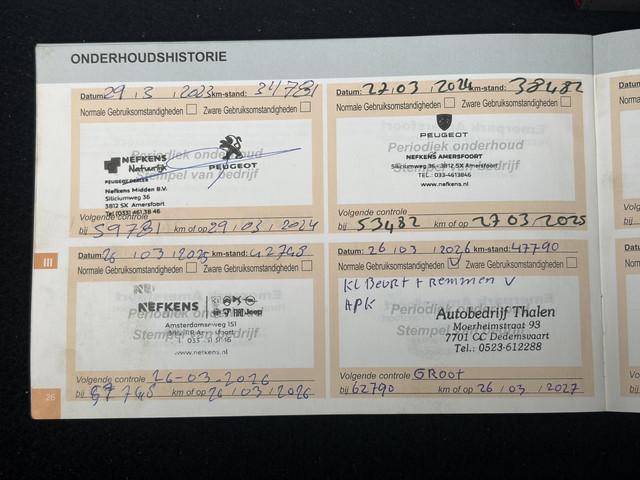 ONDERHOUDSHISTORIE
Datum: 29 / 3 / 2023 km-stand: 34781
Normale Gebruiksomstandigheden Zware Gebruiksomstandigheden
Periodiek onderhoud
NEFKENS
Natuurlijk
PEUGEOT
PEUGEOT DEALER
Stempel van bedrijf
Nefkens Midden B.V.
Siliciumweg 36
3812 SX Amersfoort
Tel (033) 461 38 46
Volgende controle
bij 59781 km of op 29 / 03 / 2024
Datum: 27 / 03 / 2024 km-stand: 38482
Normale Gebruiksomstandigheden Zware Gebruiksomstandigheden
PEUGEOT
Periodiek onderhoud
NEFKENS AMERSFOORT
Siliciumweg 36 - 3812 SX Amersfoort
TEL: 033-4613846
Stempel van bedrijf
www.nefkens.nl
Volgende controle
bij 53482 km of op 27 03 2025
Datum: 26 / 03 / 2025 km-stand: 42768
Normale Gebruiksomstandigheden Zware Gebruiksomstandigheden
NEFKENS
Jeep
Periodiek onderhoud
Amsterdamseweg 151
Stempel van bedrijf
www.nefkens.nl
Volgende controle 26-03-2026
bij km of op 26 / 03 / 2026
Datum: 26 / 03 / 2026 km-stand: 47790
Normale Gebruiksomstandigheden V Zware Gebruiksomstandigheden
Kl Beurt + Remmen V
APK
Periodiek onderhoud
Autobedrijf Thalen
Moerheimstraat 93
Stempel van bedrijf
7701 CC Dedemsvaart
Tel.: 0523-612288
Volgende controle GROOT
bij 62790 km of op 26 / 03 / 2027
III
26